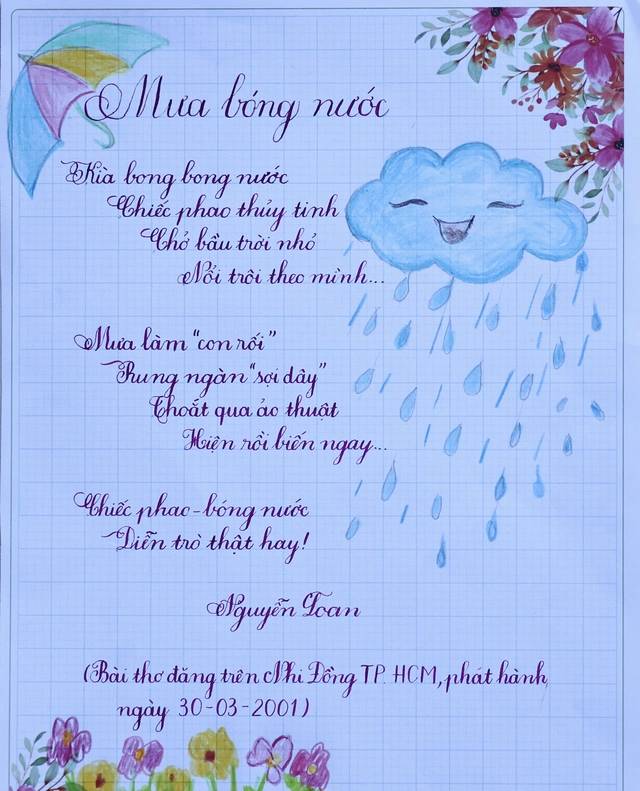 Mưa bóng nước
Kìa bong bong nước
Chiếc phao thủy tinh
Chở bầu trời nhỏ
Nổi trôi theo mình...
Mưa làm "con rối"
Rung ngàn "sợi dây"
Thoắt qua ảo thuật
Hiện rồi biến ngay...
Chiếc phao - bóng nước
Diễn trò thật hay!
Nguyễn Toan
(Bài thơ đăng trên Nhi Đồng TP. HCM, phát hành
ngày 30-03-2001)